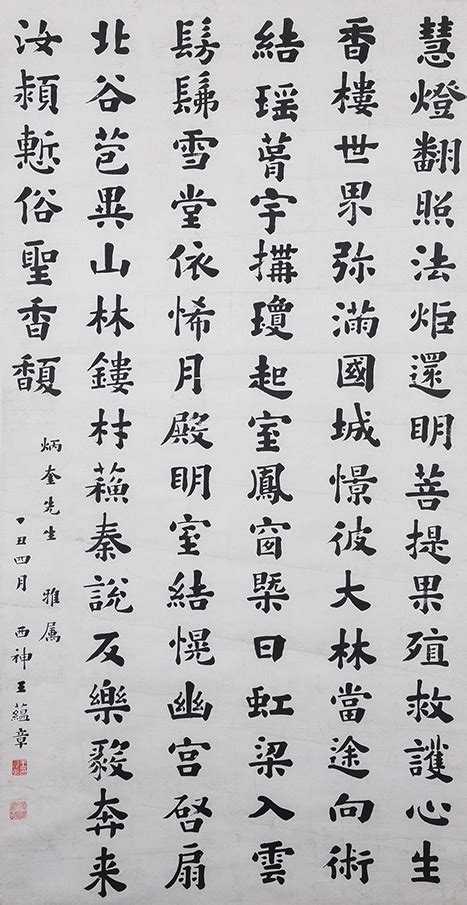 慧燈翻照法炬還明菩提果殖救護心生
香樓世界弥滿國城憬彼大林當途向術
結瑶葺宇搆瓊起室鳳窗槩日虹梁入雲
髣髴雪堂依悕月殿明室結幌幽宫啓扇
北谷苞異山林鏤村蘓秦說反樂毅奔来
汝潁慙俗聖香馥
炳奎先生 雅属
丁丑四月 西神王蘊章